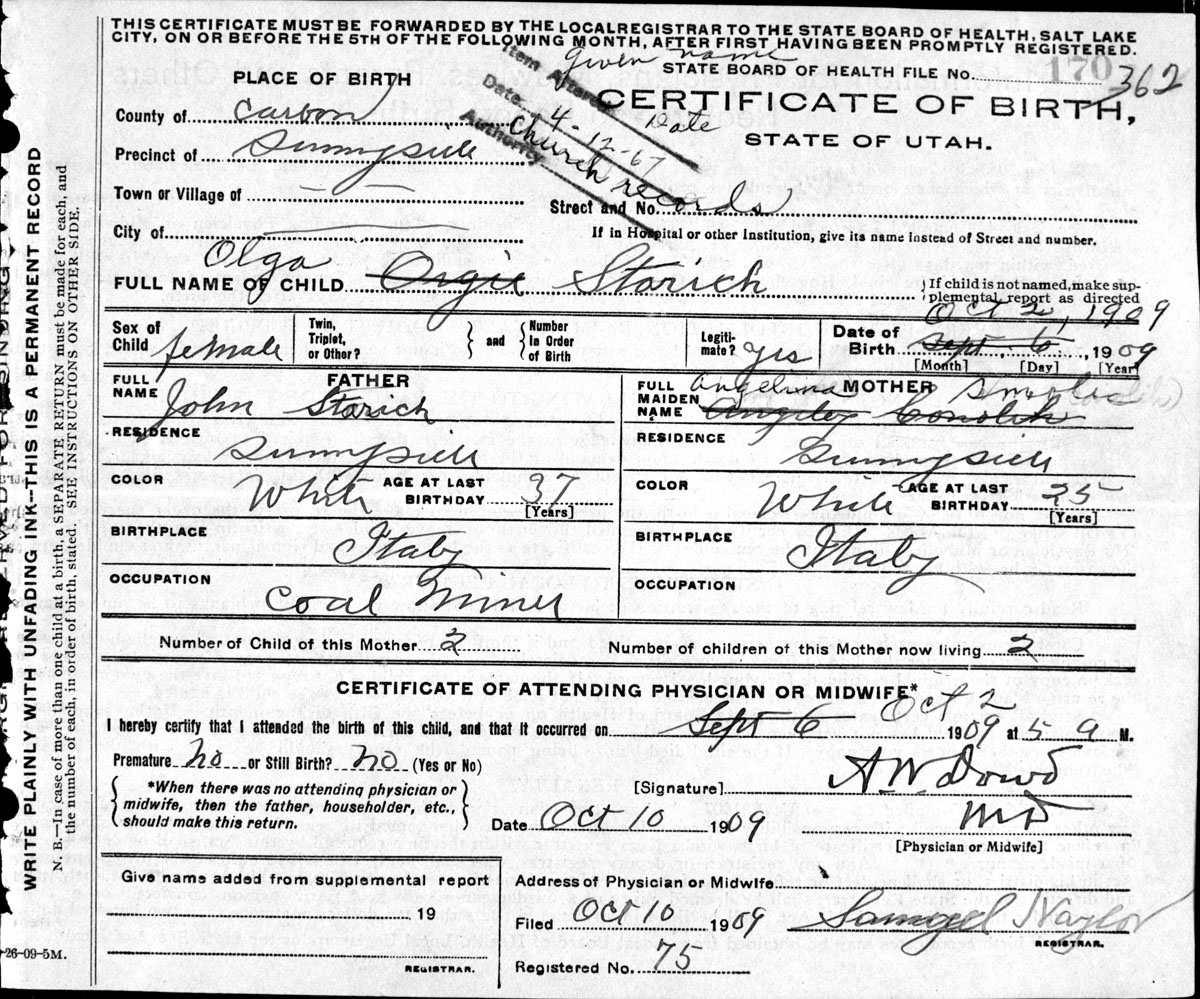 THIS CERTIFICATE MUST BE FORWARDED BY THE LOCAL REGISTRAR TO THE STATE BOARD OF HEALTH, SALT LAKE
CITY, ON OR BEFORE THE 5TH OF THE FOLLOWING MONTH, AFTER FIRST HAVING BEEN PROMPTLY REGISTERED.
Item Altered given name
Date 4-12-67 Date
Authority Church records
PLACE OF BIRTH
STATE BOARD OF HEALTH FILE No. 170 362
CERTIFICATE OF BIRTH,
STATE OF UTAH.
County of Carbon
Precinct of Sunnyside
Town or Village of
Street and No.
City of
If in Hospital or other Institution, give its name instead of Street and number.
FULL NAME OF CHILD Olga Orgie Starich
If child is not named, make supplemental report as directed
Sex of Child female
Twin, Triplet, or Other? and Number In Order of Birth
Legitimate? yes
Date of Birth Sept. 6, 1909 Oct 2, 1909
[Month] [Day] [Year]
FATHER
FULL NAME John Starich
RESIDENCE Sunnyside
COLOR White AGE AT LAST BIRTHDAY 37 [Years]
BIRTHPLACE Italy
OCCUPATION Coal Miner
MOTHER
FULL MAIDEN NAME Angelina
RESIDENCE Sunnyside
COLOR White AGE AT LAST BIRTHDAY 25 [Years]
BIRTHPLACE Italy
OCCUPATION
Number of Child of this Mother 2 Number of children of this Mother now living 2
CERTIFICATE OF ATTENDING PHYSICIAN OR MIDWIFE*
I hereby certify that I attended the birth of this child, and that it occurred on Sept 6 Oct 2 1909 at 5 a M.
Premature? No or Still Birth? No (Yes or No)
*When there was no attending physician or
midwife, then the father, householder, etc.,
should make this return.
[Signature] A.W. Dowd
MD
[Physician or Midwife]
Date Oct 10 1909
Give name added from supplemental report
19
REGISTRAR.
Address of Physician or Midwife
Filed Oct 10 1909 Samuel Naylor
REGISTRAR.
Registered No. 75
WRITE PLAINLY WITH UNFADING INK--THIS IS A PERMANENT RECORD
N. B.—In case of more than one child at a birth, a SEPARATE RETURN must be made for each, and
the number of each, in order of birth, stated. SEE INSTRUCTIONS ON OTHER SIDE.
-26-09-5M.